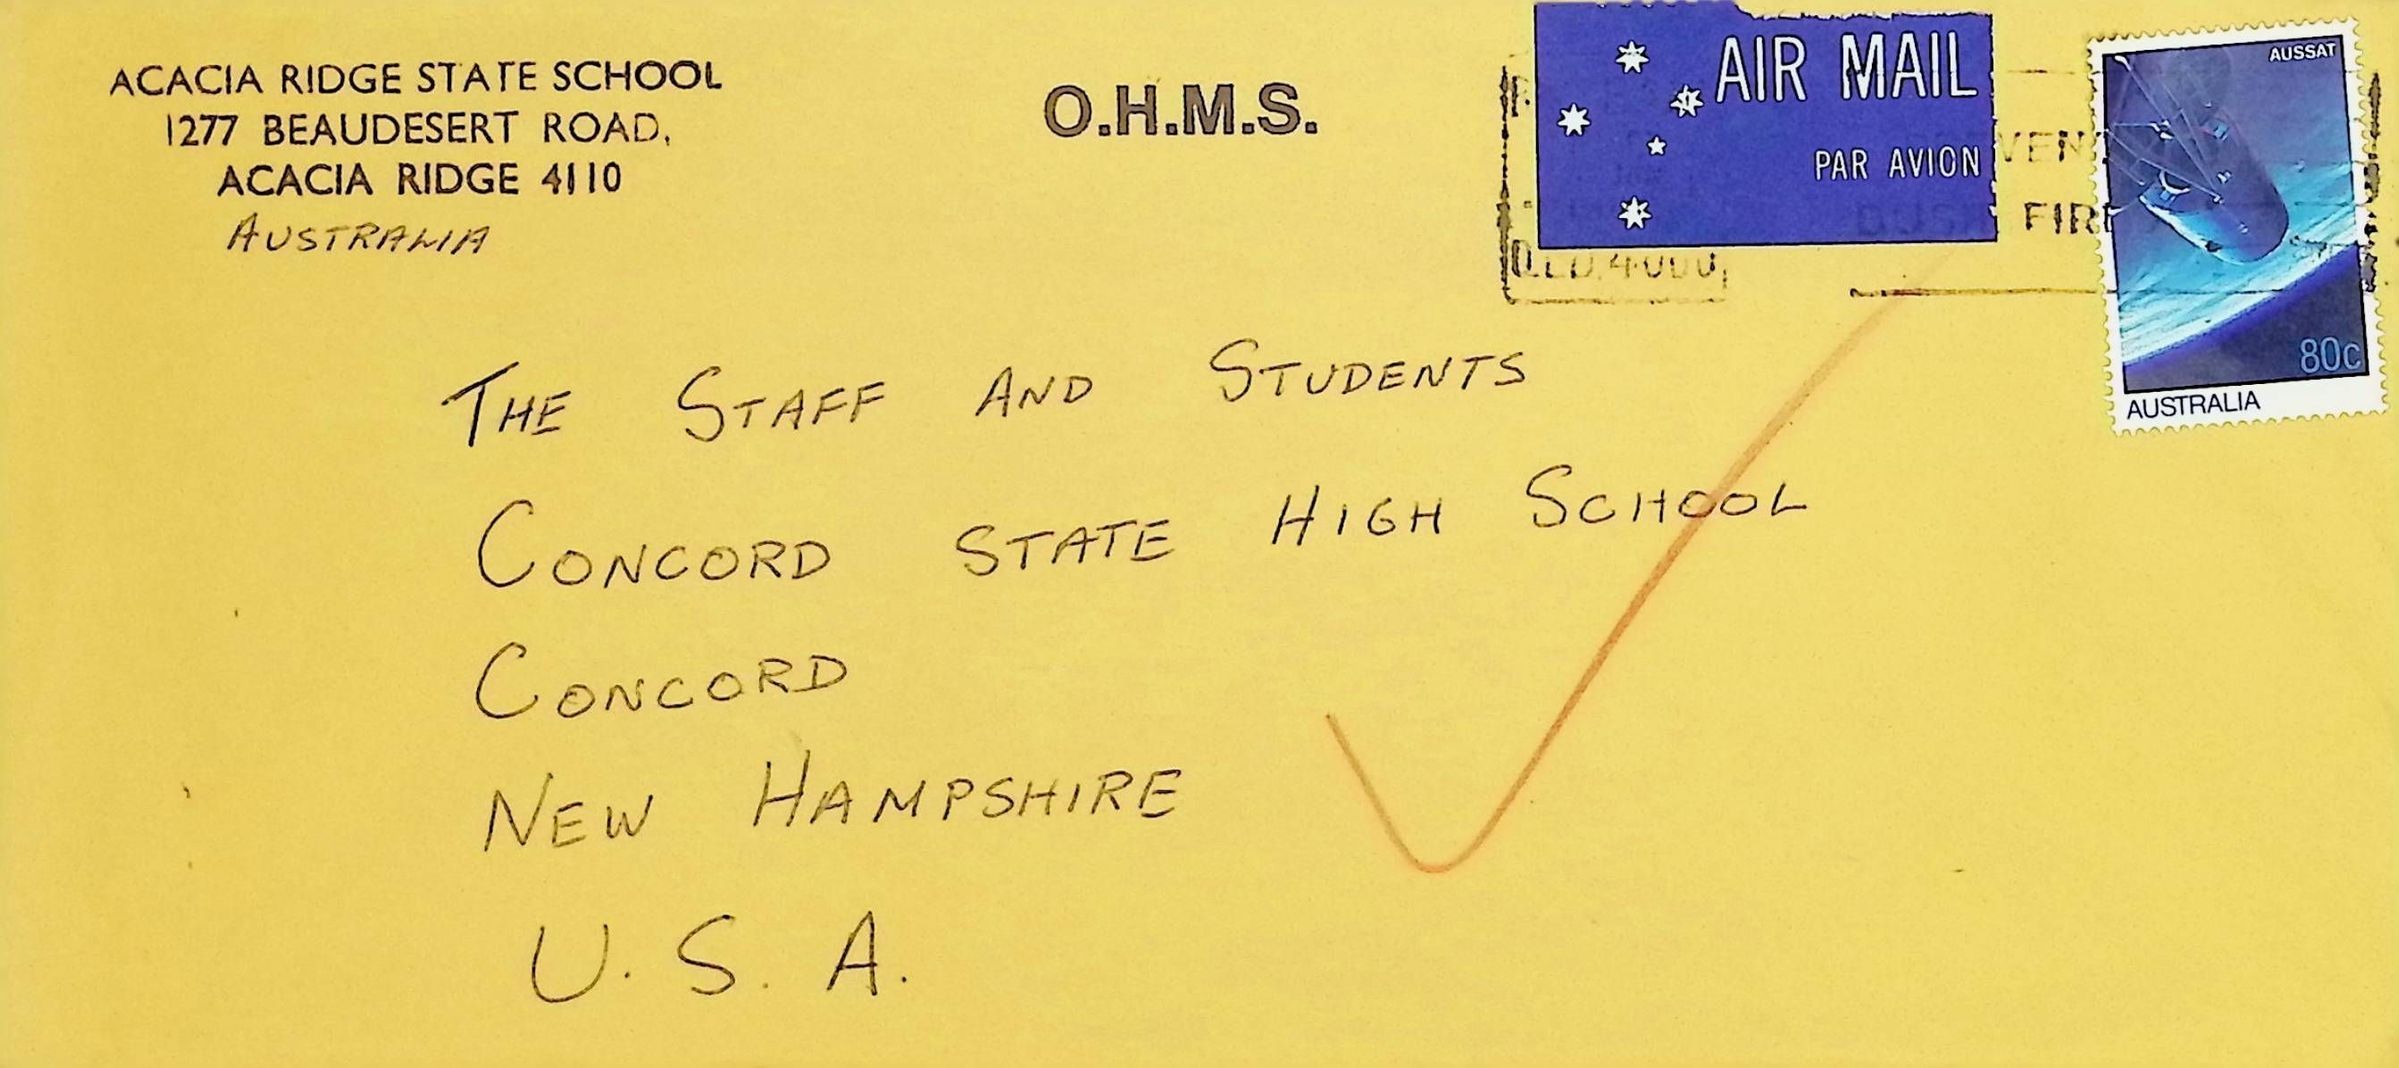 ACACIA RIDGE STATE SCHOOL
1277 BEAUDESERT ROAD,
ACACIA RIDGE 4110
AUSTRALIA
O.H.M.S.
AIR MAIL
PAR AVION
QLD. 4000
FIRE
AUSSAT
80c
AUSTRALIA
THE STAFF AND STUDENTS
CONCORD STATE HIGH SCHOOL
CONCORD
NEW HAMPSHIRE
U.S.A.